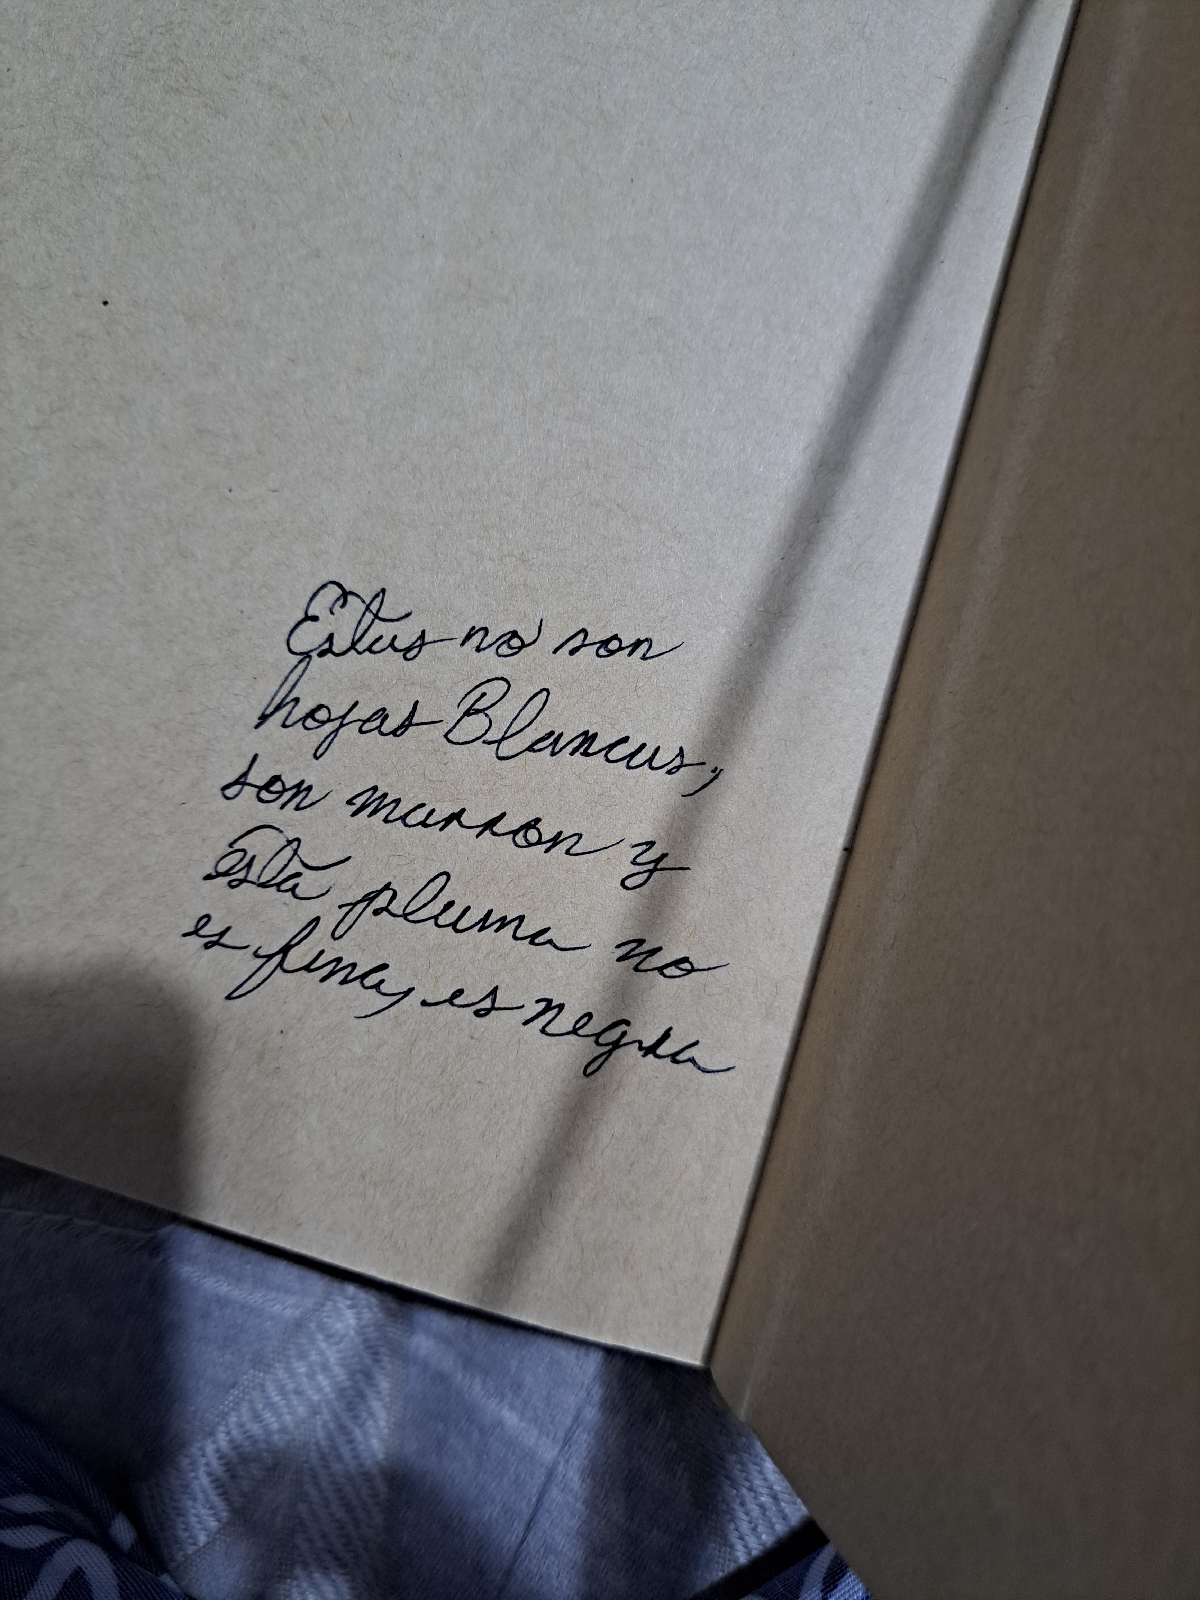 Estas no son
hojas Blancas,
son marron y
Esta pluma no
es fina, es negra